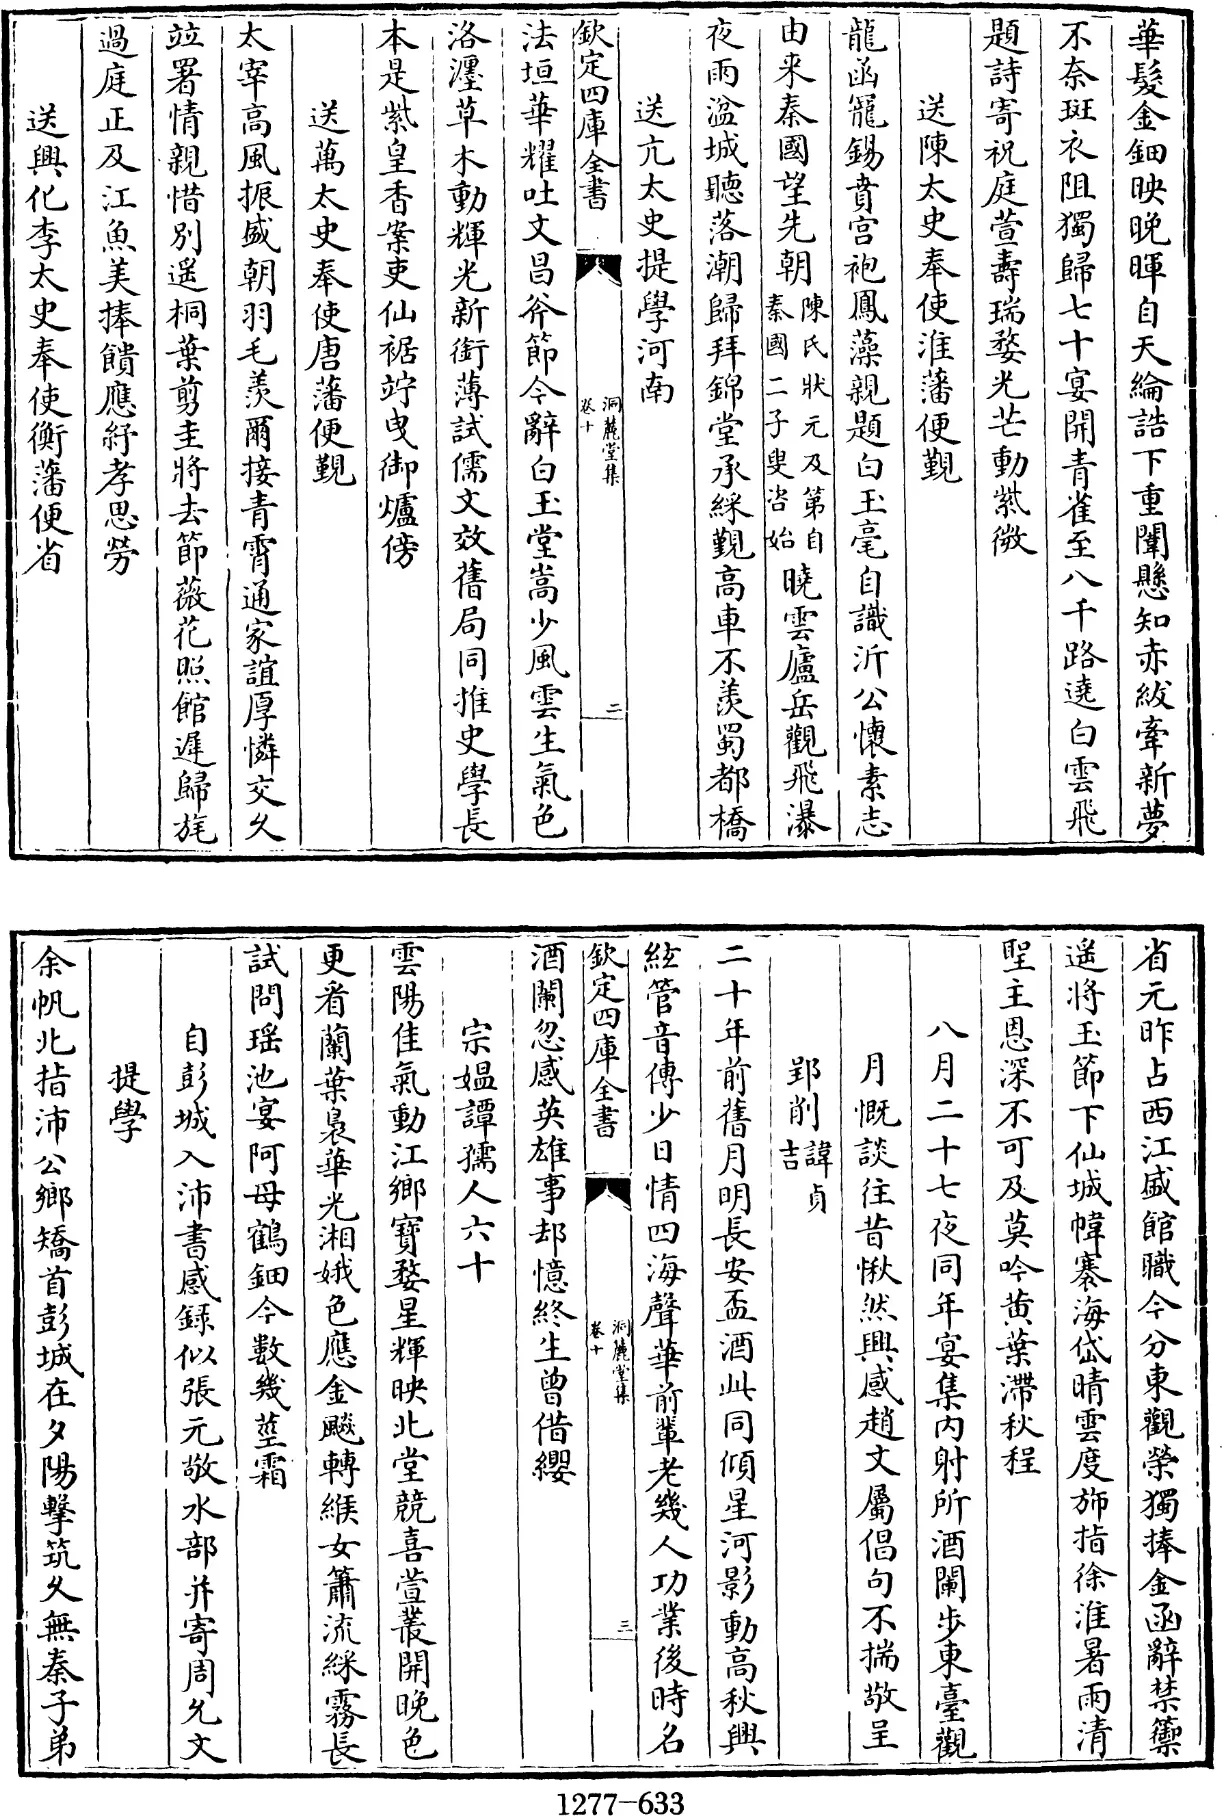 華髮金鈿映晚暉自天綸誥下重闈懸知赤紱牽新夢
不奈斑衣阻獨歸七十宴開青雀至八千路遶白雲飛
題詩寄祝庭萱壽瑞婺光芒動紫微
送陳太史奉使淮藩便覲
龍函寵錫賁宫袍鳳藻親題白玉毫自識沂公懷素志
由来秦國望先朝陳氏狀元及第自秦國二子叟咨始曉雲廬岳觀飛瀑
夜雨湓城聽落潮歸拜錦堂承綵覲高車不羨蜀都橋
送亢太史提學河南
欽定四庫全書
洞麓堂集
卷十
二
法垣華耀吐文昌斧節今辭白玉堂嵩少風雲生氣色
洛瀍草木動輝光新銜薄試儒文效舊局同推史學長
本是紫皇香案吏仙裾竚曵御爐傍
送萬太史奉使唐藩便覲
太宰高風振盛朝羽毛羨爾接青霄通家誼厚憐交久
竝署情親惜別遥桐葉剪圭將去節薇花照館遲歸旄
過庭正及江魚美捧饋應紓孝思勞
送興化李太史奉使衡藩便省
省元昨占西江盛館職今分東觀榮獨捧金函辭禁籞
遥將玉節下仙城幃褰海岱晴雲度斾指徐淮暑雨清
聖主恩深不可及莫吟黄葉滯秋程
八月二十七夜同年宴集内射所酒闌步東臺觀
月慨談往昔愀然興感趙文屬倡句不揣敬呈
郢削諱貞吉
二十年前舊月明長安盃酒此同傾星河影動高秋興
絃管音傳少日情四海聲華前輩老幾人功業後時名
欽定四庫全書
洞麓堂集
卷十
三
酒闌忽感英雄事却憶終生曾借纓
宗媪譚孺人六十
雲陽佳氣動江鄉寶婺星輝映北堂競喜萱叢開晚色
更看蘭葉裊華光湘娥色應金飈轉緱女簫流綵霧長
試問瑶池宴阿母鶴鈿今數幾莖霜
自彭城入沛書感録似張元敬水部并寄周允文
提學
余帆北指沛公鄉矯首彭城在夕陽擊筑久無秦子弟
1277-633